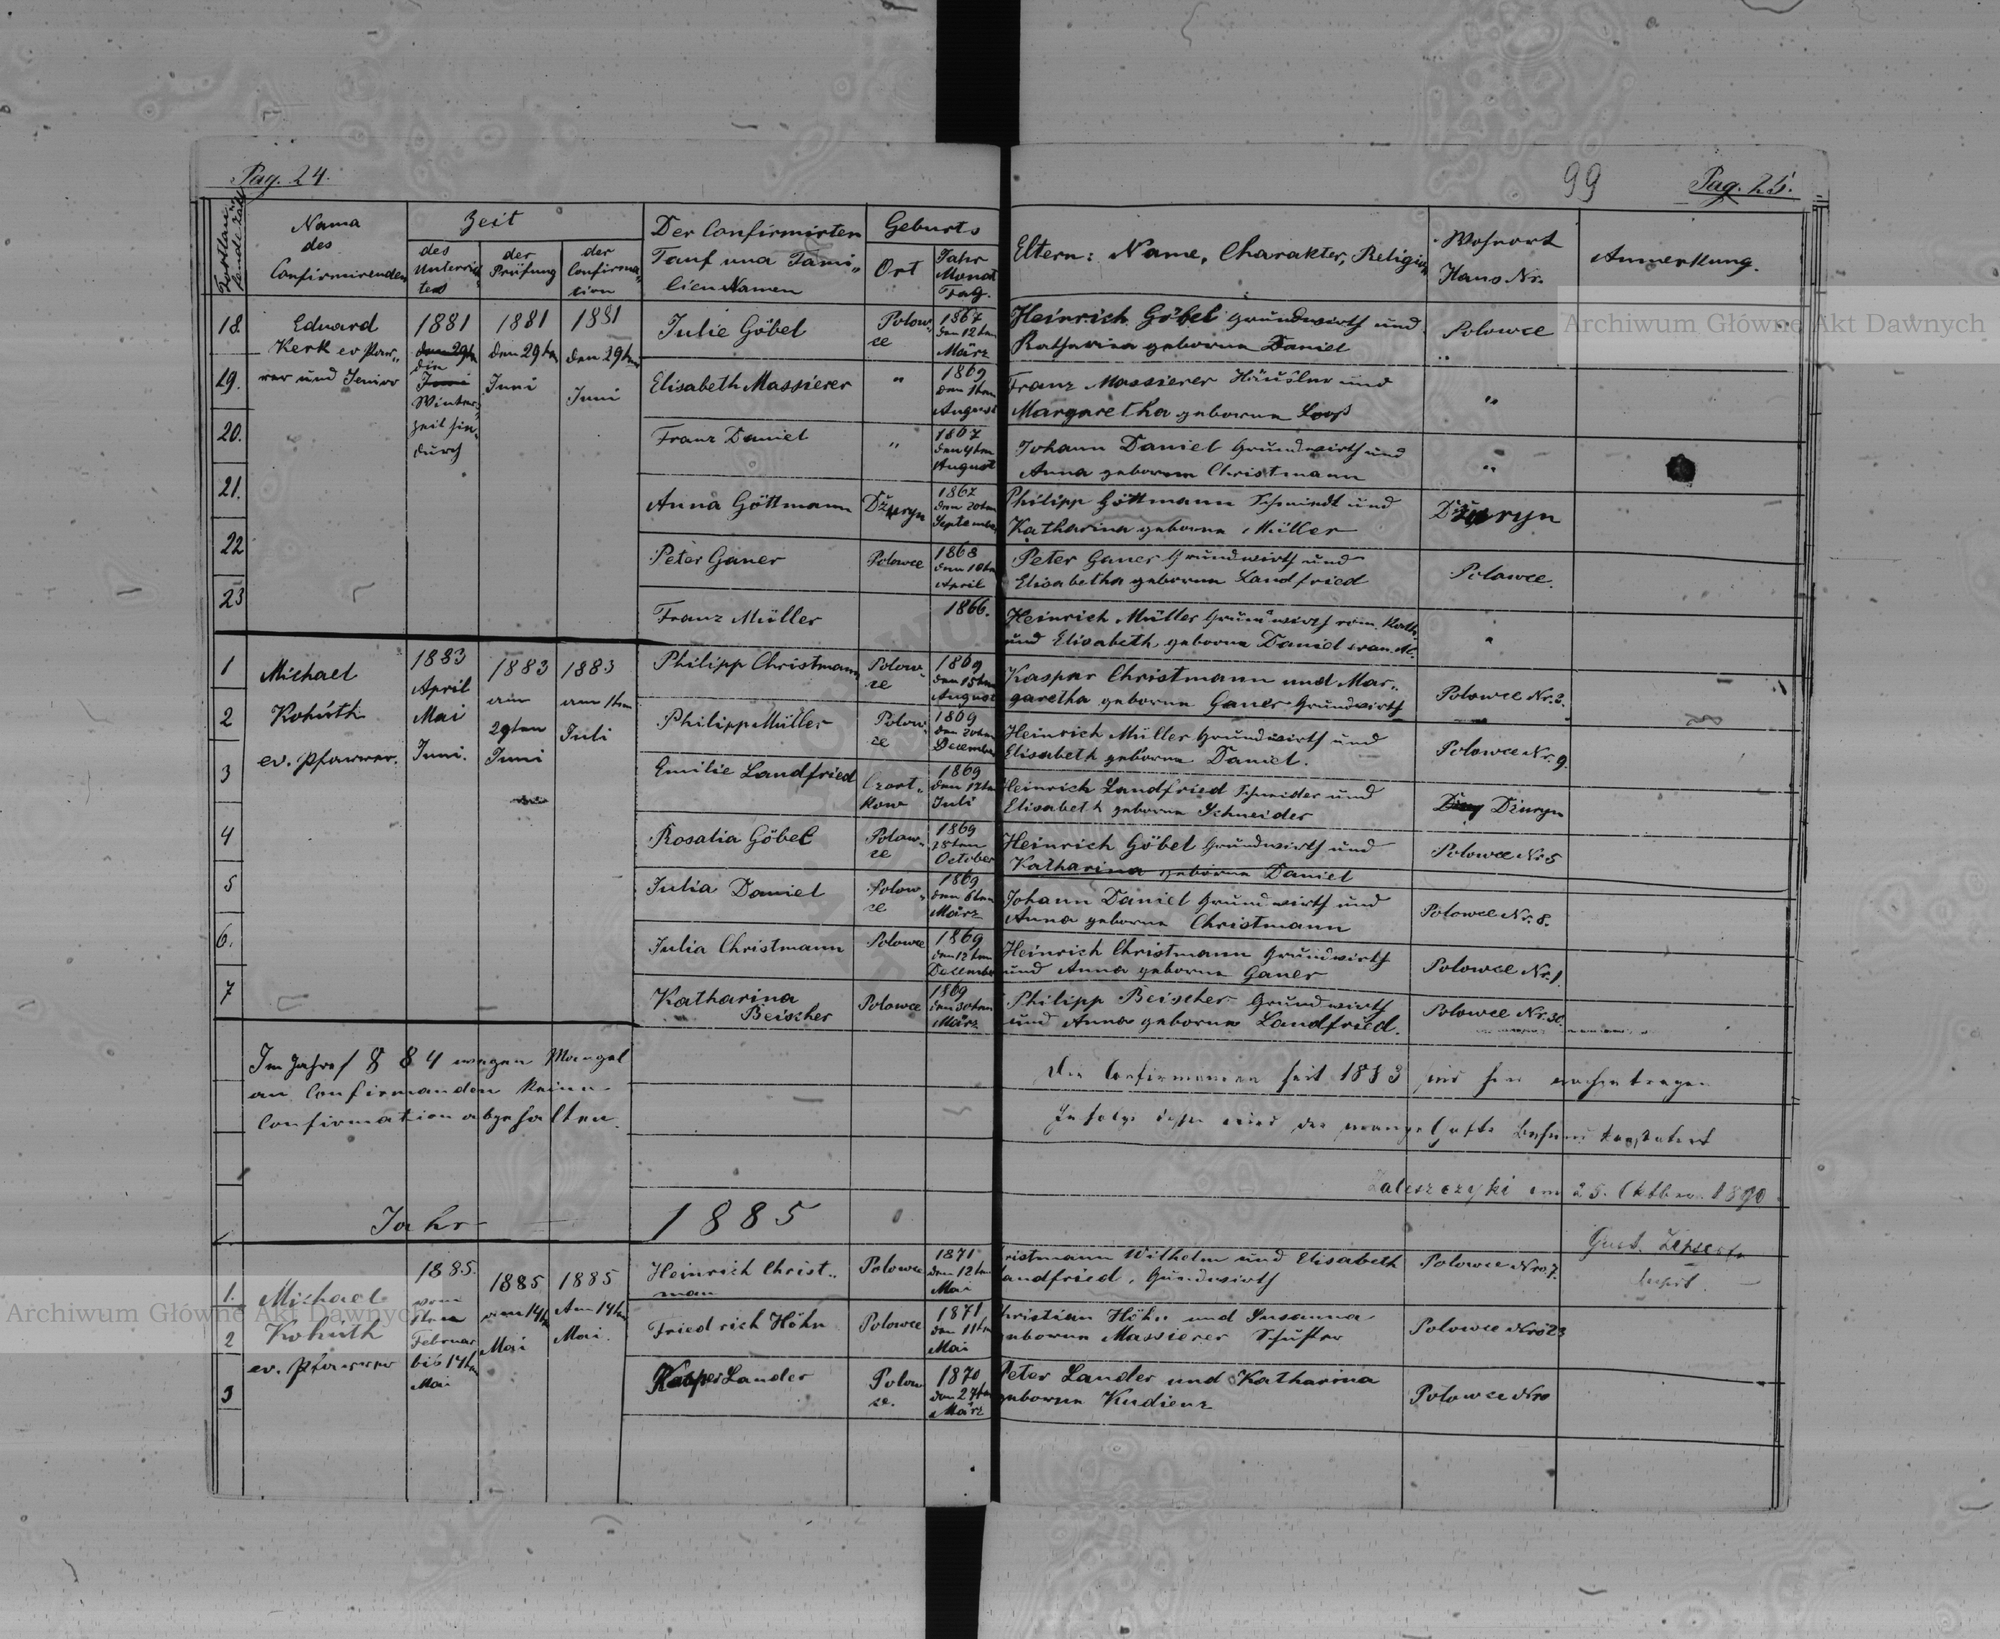 Pag. 24.
99
Pag. 25.
Fortlau-
fende Zahl
Name
des
Confirmirenden
Zeit
des
Unterrich-
tes
der
Prüfung
der
Confirma-
tion
Der Confirmirten
Tauf und Fami-
lien Namen
Geburts
Ort
Jahr
Monat
Tag.
Eltern: Name, Charakter, Religion
Wohnort
Haus Nr.
Anmerkung.
18.
Eduard
Kerk ev Pfar-
rer und Senior
1881
den 29ten
die
Juni
Winter-
zeit hin-
durch
1881
den 29ten
Juni
1881
den 29ten
Juni
Julie Göbel
Polow-
ce
1867
den 12ten
März
Heinrich Göbel Grundwirth und
Katharina geborene Daniel
Polowce
19.
Elisabeth Massierer
"
1869
den 1ten
August
Franz Massierer Häusler und
Margaretha geborene Looß
"
20.
Franz Daniel
"
1867
den 4ten
August
Johann Daniel Grundwirth und
Anna geborene Christmann
"
21.
Anna Göttmann
Džuryn
1867
den 20ten
September
Philipp Göttmann Schmiedt und
Katharina geborene Müller
Džuryn
22
Peter Ganer
Polowce
1868
den 10ten
April
Peter Ganer Grundwirth und
Elisabetha geborene Landfried
Polowce.
23
Franz Müller
1866.
Heinrich Müller Grundwirth röm. Kath.
und Elisabeth geborene Daniel evan. AC.
"
1
Michael
Kohúth
ev. Pfarrer.
1883
April
Mai
Juni.
1883
am
29ten
Juni
1883
am 1ten
Juli
Philipp Christmann
Polow-
ce
1869
den 15ten
August
Kaspar Christmann und Mar-
garetha geborene Ganer Grundwirth
Polowce Nr. 2.
2
Philipp Müller
Polow-
ce
1869
den 20ten
December
Heinrich Müller Grundwirth und
Elisabeth geborene Daniel.
Polowce Nr. 9.
3
Emilie Landfried
Czort-
kow
1869
den 12ten
Juli
Heinrich Landfried Schneider und
Elisabeth geborene Schneider
Džuryn
4
Rosalia Göbel
Polow-
ce
1869
October
Heinrich Göbel Grundwirth und
Katharina geborene Daniel
Polowce Nr. 5
5
Julia Daniel
Polow-
ce
1869
den 6ten
März
Johann Daniel Grundwirth und
Anna geborene Christmann
Polowce Nr. 8.
6.
Julia Christmann
Polowce
1869
den 12ten
December
Heinrich Christmann Grundwirth
und Anna geborene Ganer
Polowce Nr. 1.
7
Katharina
Beischer
Polowce
1869
den 30ten
März
Philipp Beischer Grundwirth
und Anna geborene Landfried.
Polowce Nr. 30.
Im Jahre 1884 wegen Mangel
an Confirmanden keine
Confirmation abgehalten.
Die Confirmanden seit 1883 sind hier nachzutragen
In Folge dessen wird der mangelhafte Befund konstatirt
Zaleszczyki am 25. Oktber. 1890
Gust.
Jahr 1885
1.
Michael
Kohúth
ev. Pfarrer
1885.
vom
1ten
Februar
bis 14ten
Mai
1885
den 14ten
Mai
1885
Am 14ten
Mai.
Heinrich Christ-
man
Polowce
1871
den 12ten
Mai
ristmann Wilhelm und Elisabeth
andfried, Grundwirth
Polowce Nro. 7.
2
Friedrich Höhn
Polowce
1871
den 11ten
Mai
hristian Höhn und Susanna
geborene Massierer Schuster
Polowce Nro 23
3
Kasper Lander
Polow
ce.
1870
den 27ten
März
Peter Lander und Katharina
geborene Kudienz
Polowce Nro
Archiwum Główne Akt Dawnych
Archiwum Główne Akt Dawnych